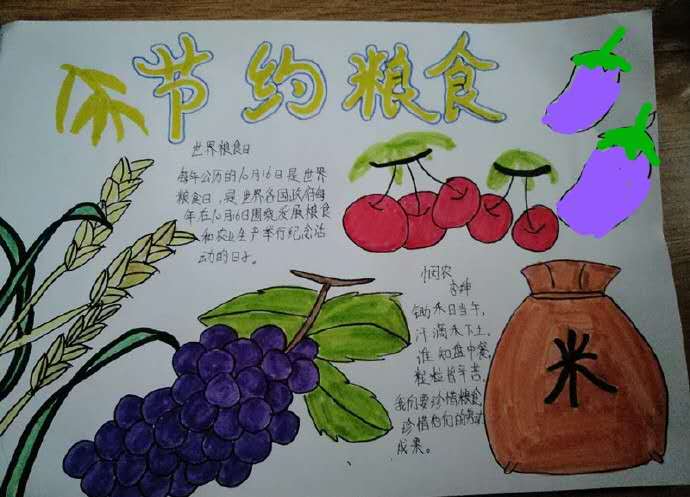 节约粮食
世界粮食日
每年公历的10月16日是世界
粮食日，是世界各国政府每
年在10月16日围绕发展粮食
和农业生产举行纪念活
动的日子。
悯农
李绅
锄禾日当午，
汗滴禾下土。
谁知盘中餐，
粒粒皆辛苦。
我们要珍惜粮食
珍惜他们的劳动
成果。
米